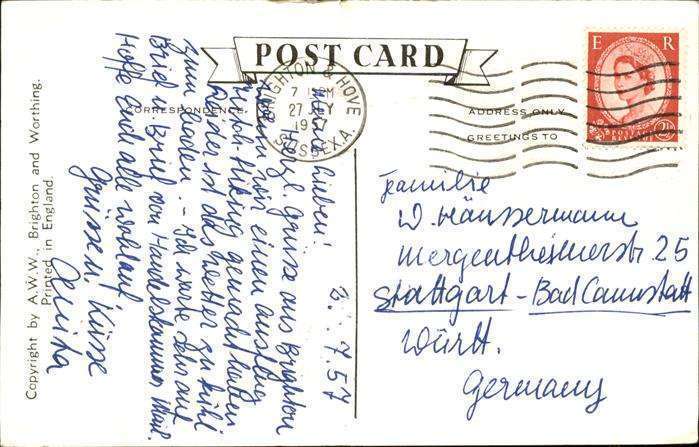 POST CARD
CORRESPONDENCE
ADDRESS ONLY
GREETINGS TO
E R
POSTAGE REVENUE
2½
BRIGHTON & HOVE
7 PM
27
SUSSEX. A.
Familie
W. Häussermann
Mergentheimerstr. 25
Stuttgart - Bad Cannstatt
Württ.
Germany
7.57
Meine Lieben!
Herzl. Grüsse aus Brighton
wohin wir einen Ausflug
gemacht haben
Leider ist das Wetter zu kühl
zum Baden. - Ich warte sehr auf
Brief u. Brief von
Hoffe Euch alle wohlauf
Grüssen, Küsse
Anita
Copyright by A.W.W., Brighton and Worthing.
Printed in England.